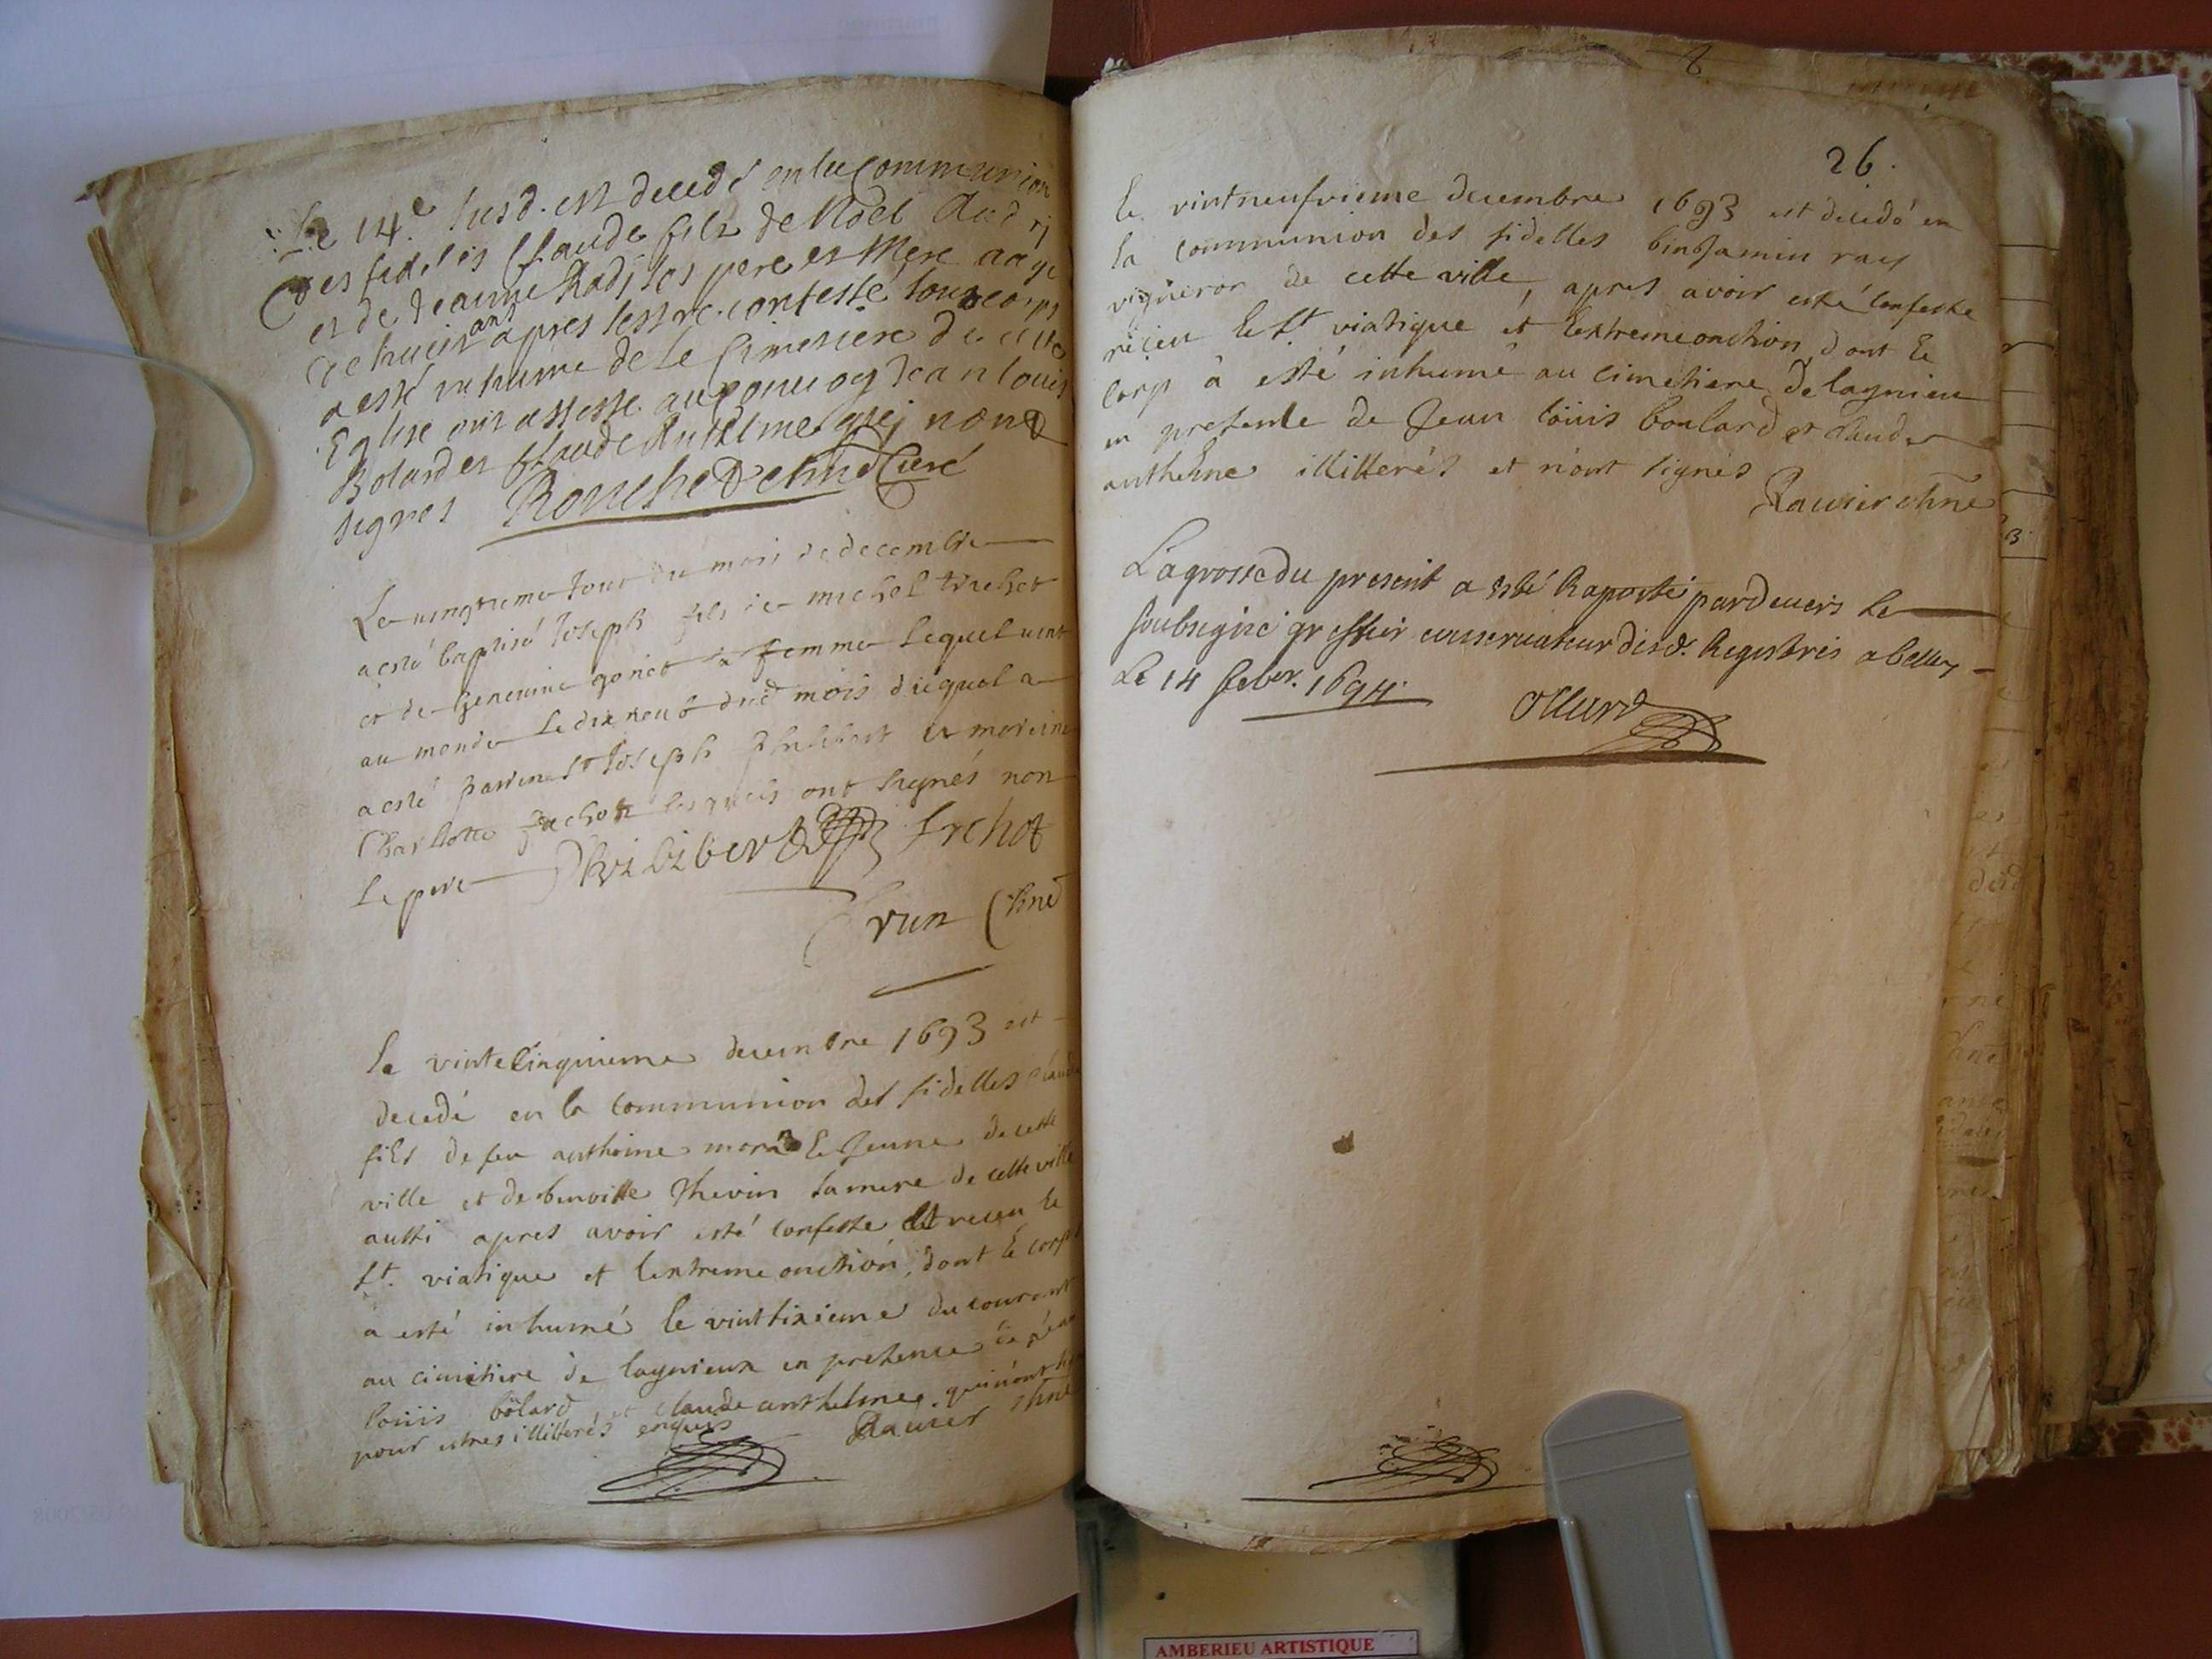 Le 14e susd. est decedé en la Communion
des fidelis Claude fils de Noël
et de Jeanne ses pere et Mere aagé
de huict ans apres s'estre confessé son corps
a esté inhumé de le Cimetiere de cette
Eglise ont assisté au convoy Jean louis
Bolard et Claude Anthelme quj nont
signes Rouche Curé
Le vingtieme Jour du mois de decembre
a esté baptisé Joseph fils de michel trichot
et de genevieve sa femme lequel vint
au monde le dix neuf dud mois duquel a
esté parrin Sr Joseph philibert et moreine
Charlotte lesquels ont signés non
le pere Philibert trichot
Brun Chne
le vintecinquieme decembre 1693 est
decedé en la communion des fidelles Claude
fils de feu anthoine le Jeune de cette
ville et de benoitte Thevin sa mere de cette ville
aussi apres avoir esté confessé et receu le
St. viatique et lextreme onction, dont le corps
a esté inhumé le vintsixieme du courant
au cimitiere de lagnieux en presence de jean
louis bolard et claude anthelme qui n'ont
pour estres illitterés enquis Ravier chne
26.
le vintneufvieme decembre 1693 est decedé en
la communion des fidelles binJamin ray
vigneron de cette ville, apres avoir esté confessé
receu le St viatique et lextremeonction dont le
corp à esté inhumé au cimetiere de lagnieu
en presence de Jean louis boulard et claude
anthelme illitterés et n'ont signés
Ravier chne
La grosse du present a esté Raporté pardevers le
soubsigné greffier conservateur desd. Registres a belley
Le 14 febvr. 1694.
AMBERIEU ARTISTIQUE